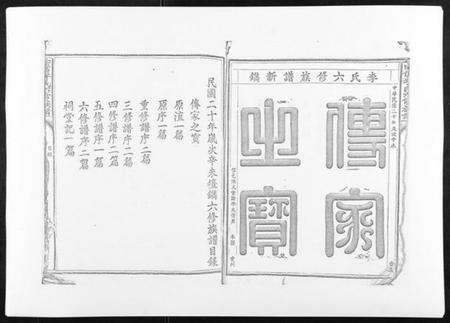 李氏六修族譜新鐫
中華民國二十年歲次辛未
傳家
之寶
民國二十年歲次辛未痘鐫六修族譜目錄
傳家之寶
原流一篇
原序一篇
重修譜序二篇
三修譜序二篇
四修譜序二篇
五修譜序一篇
六修譜序二篇
祠堂記一篇